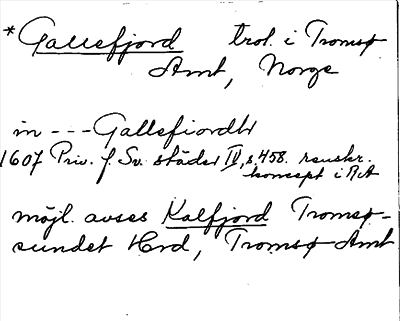 *Gallefjord trol. i Tromsø
Amt, Norge
in --- Gallefiordh
1607 Priv. f. Sv. städer IV, s. 458. renskr.
koncept i RA
möjl. avses Kalfjord Tromsø-
sundet Hrd, Tromsø Amt